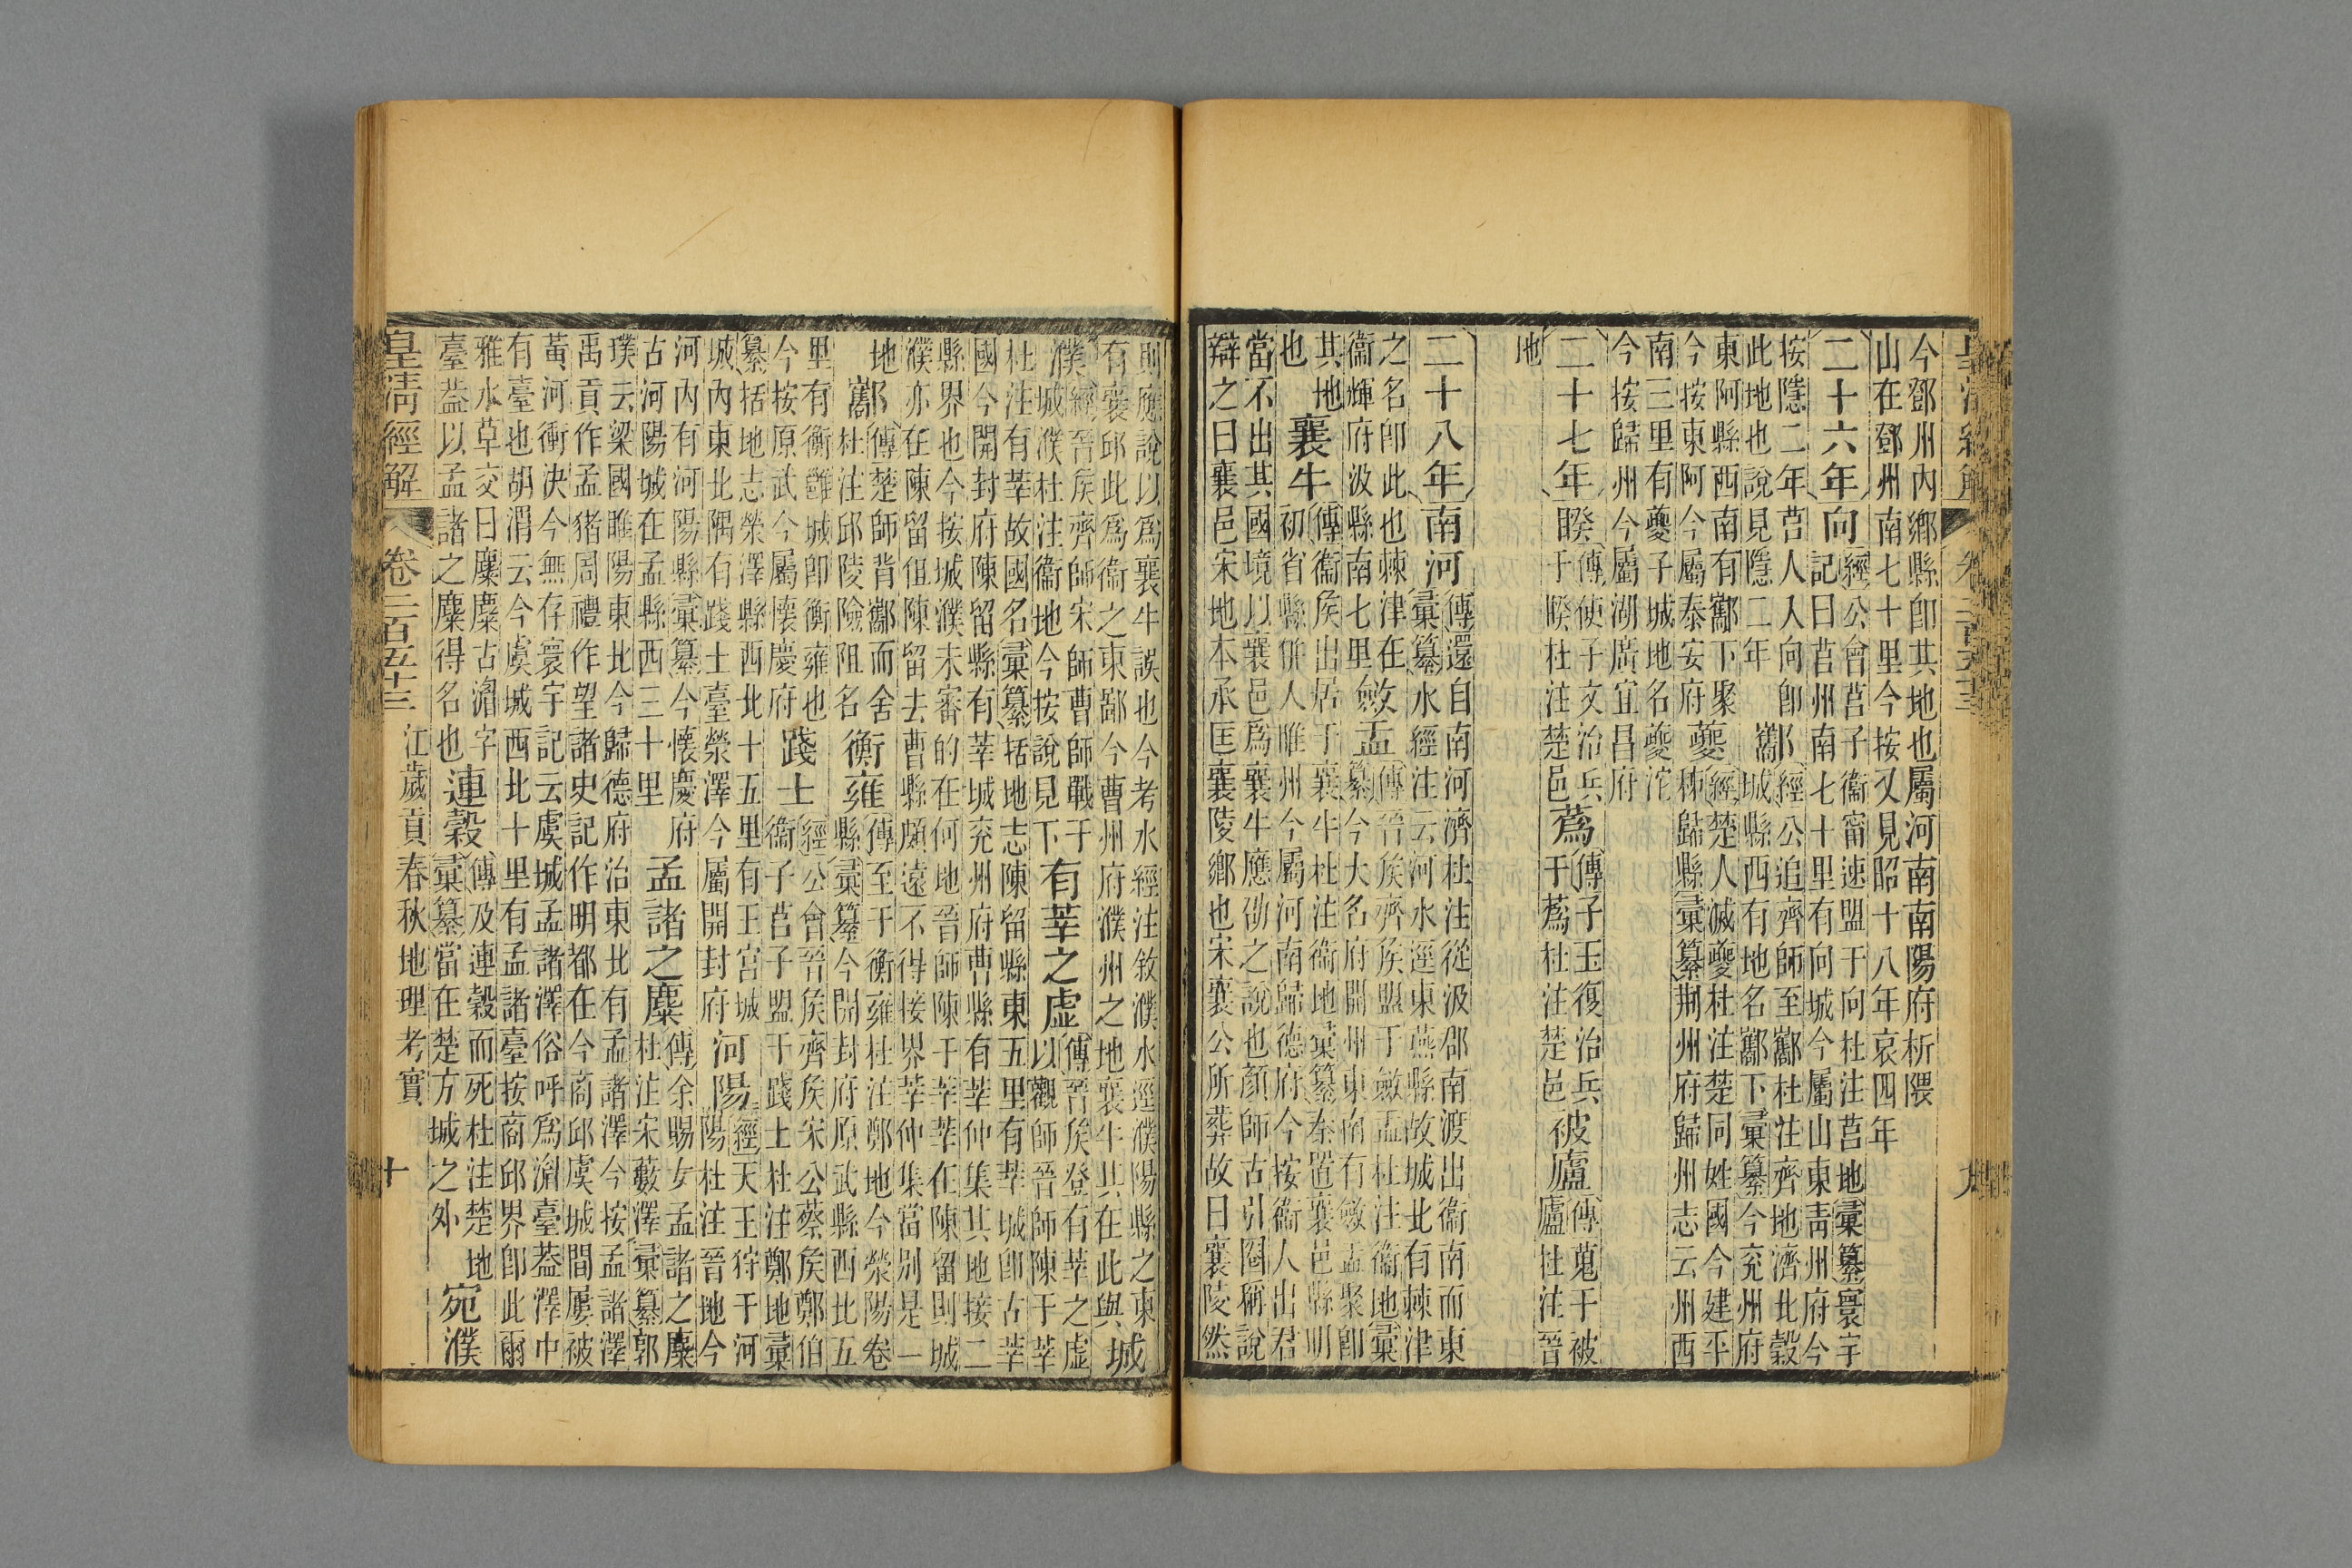 今鄧州內鄉縣卽其地也屬河南南陽府析隈
山在鄧州南七十里今按又見昭十八年哀四年
二十六年
向
經公會莒子衞甯速盟于向杜注莒地彙纂寰宇
記曰莒州南七十里有向城今屬山東靑州府今
按隱二年莒人人向卽
此地也說見隱二年
酅
經公追齊師至酅杜注齊地濟北穀
城縣西有地名酅下彙纂今兖州府
東阿縣西南有酅下聚
今按東阿今屬泰安府
夔
經楚人滅夔杜注楚同姓國今建平
秭歸縣彙纂荆州府歸州志云州西
南三里有夔子城地名夔沱
今按歸州今屬湖廣宜昌府
二十七年
睽
傳使子文治兵
于睽杜注楚邑
蔿
傳子玉復治兵
于蔿杜注楚邑
被廬
傳蒐于被
廬杜注晉
地
二十八年
南河
傳還自南河濟杜注從汲郡南渡出衞南而東
彙纂水經注云河水逕東燕縣故城北有棘津
之名卽此也棘津在
衞輝府汲縣南七里
斂盂
傳晉矦齊矦盟于斂盂杜注衞地彙
纂今大名府開州東南有斂盂聚卽
其地
襄牛
傳衞矦出居于襄牛杜注衞地彙纂秦置襄邑縣明
也
初省縣倂人睢州今屬河南歸德府今按衞人出君
當不出其國境以襄邑爲襄牛應劭之說也顏師古引圈稱說
辯之曰襄邑宋地本承匡襄陵鄉也宋襄公所葬故曰襄陵然
則應說以爲襄牛誤也今考水經注敘濮水逕濮陽縣之東
有襄邱此爲衞之東鄙今曹州府濮州之地襄牛其在此與
城
濮
經晉矦齊師宋師曹師戰于
城濮杜注衞地今按說見下
有莘之虛
傳晉矦登有莘之虛
以觀師晉師陳于莘
杜注有莘故國名彙纂括地志陳留縣東五里有莘城卽古莘
國今開封府陳留縣有莘城兖州府曹縣有莘仲集其地接二
縣界也今按城濮未審的在何地晉師陳于莘莘在陳留則城
濮亦在陳留但陳留去曹縣頗遠不得接界莘仲集當別是一
地
酅
傳楚師背酅而舍
杜注邱陵險阻名
衡雍
傳至于衡雍杜注鄭地今滎陽卷
縣彙纂今開封府原武縣西北五
里有衡雝城卽衡雍也
今按原武今屬懷慶府
踐土
經公會晉矦齊矦宋公蔡矦鄭伯
衞子莒子盟于踐土杜注鄭地彙
纂括地志滎澤縣西北十五里有王宮城
城內東北隅有踐土臺滎澤今屬開封府
河陽
經天王狩于河
陽杜注晉地今
河內有河陽縣彙纂今懷慶府
古河陽城在孟縣西三十里
孟諸之麋
傳余賜女孟諸之麋
杜注宋藪澤彙纂郭
璞云梁國睢陽東北今歸德府治東北有孟諸澤今按孟諸澤
禹貢作孟豬周禮作望諸史記作明都在今商邱虞城間屢被
黃河衝決今無存寰宇記云虞城孟諸澤俗呼爲湄臺葢澤中
有臺也胡渭云今虞城西北十里有孟諸臺按商邱界卽此爾
雅水草交曰麋麋古湄字
臺葢以孟諸之麋得名也
連穀
傳及連穀而死杜注楚地
彙纂當在楚方城之外
宛濮
皇淸經解
卷二百五十三
江歲貢春秋地理考實
十